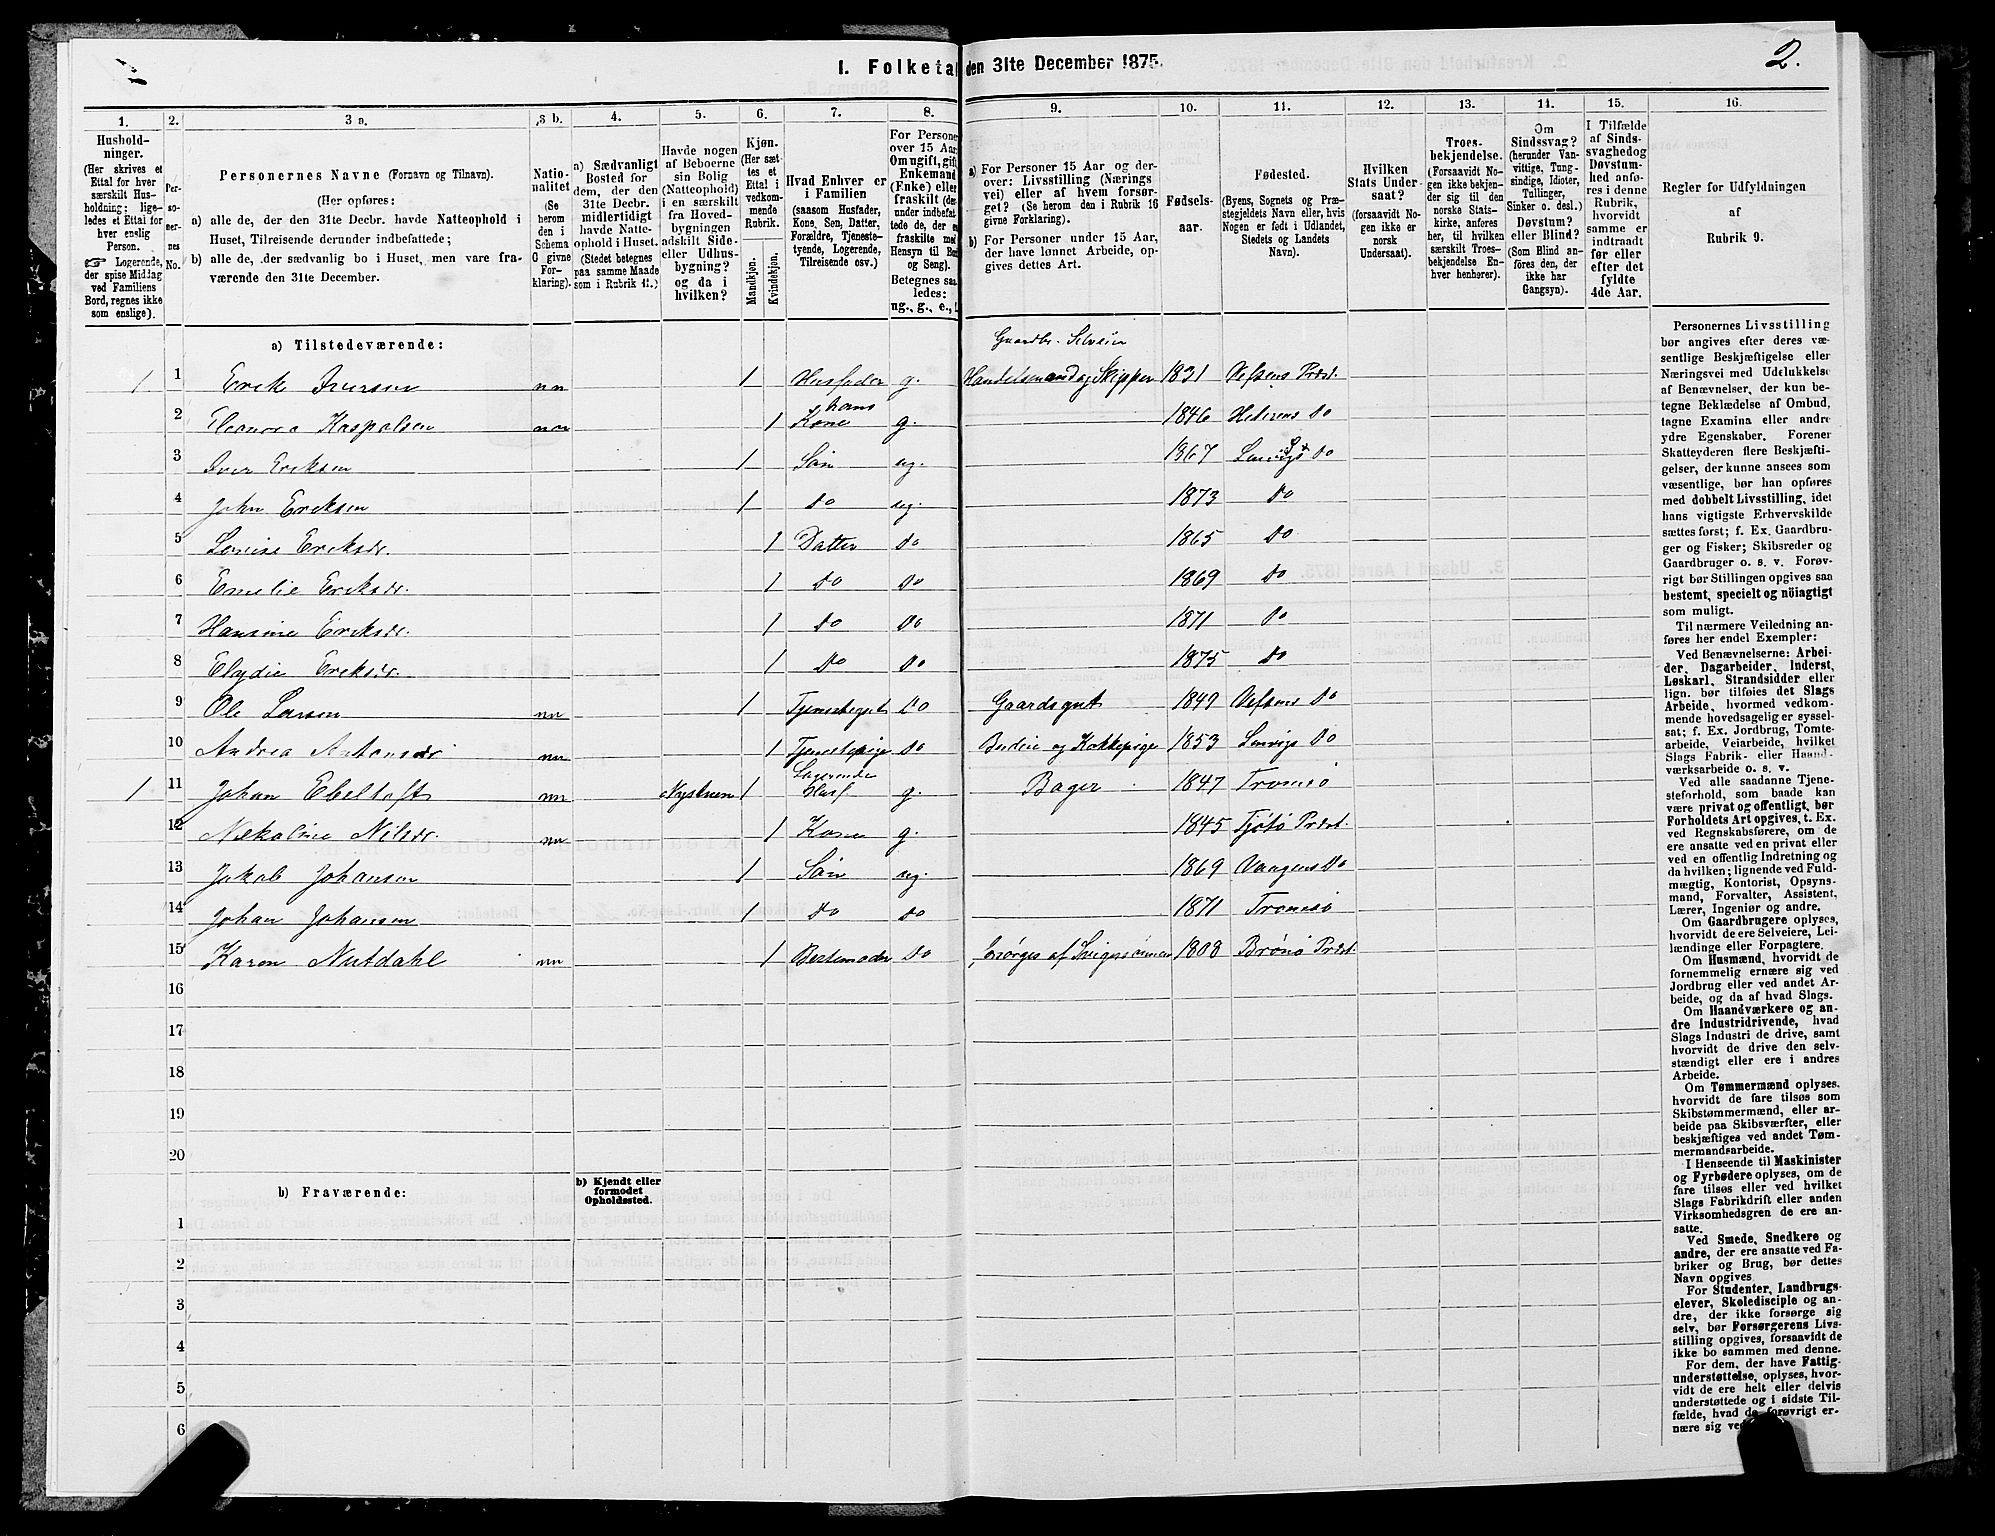 I. Folketa
den 31te December 1875.
2.
1. 2. 3 a. 3 b. 4. 5. 6. 7. 8. 9. 10. 11. 12. 13. 14. 15. 16.
Hushold-
ninger.
(Her skrives et
Ettal for hver
særskilt Hus-
holdning; lige-
ledes et Ettal for
hver enslig
Person.
☞ Logerende,
der spise Middag
ved Familiens
Bord, regnes ikke
som enslige).
Per-
so-
ner-
nes
No.
Personernes Navne (Fornavn og Tilnavn).
(Her opføres:
a) alle de, der den 31te Decbr. havde Natteophold i
Huset, Tilreisende derunder indbefattede;
b) alle de, der sædvanlig bo i Huset, men vare fra-
værende den 31te December.
Natio-
nalitet
(Se
herom
den i
Schema
G givne
For-
klaring).
a) Sædvanligt
Bosted for
dem, der den
31te Decbr.
midlertidigt
havde Natte-
ophold i Huset.
(Stedet betegnes
paa samme Maade
som i Rubrik 11.)
Havde nogen
af Beboerne
sin Bolig
(Natteophold)
i en særskilt
fra Hoved-
bygningen
adskilt Side-
eller Udhus-
bygning?
og da i
hvilken?
Kjøn.
(Her sæt-
tes et
Ettal i
vedkom-
mende
Rubrik.
Mandkjøn.
Kvindekjøn.
Hvad Enhver er
i Familien
(saasom Husfader,
Kone, Søn, Datter,
Forældre, Tjeneste-
tyende, Logerende,
Tilreisende osv.)
For Persone
over 15 Aar
Om ugift, gift
Enkemand
(Enke) eller
fraskilt (der-
under indbefat
tede de, der e
fraskilte med
Hensyn til Bo
og Seng).
Betegnes saa
ledes:
ug., g., e.,
a) For Personer 15 Aar og der-
over: Livsstilling (Nærings
vei) eller af hvem forsør-
get? (Se herom den i Rubrik 16
givne Forklaring).
b) For Personer under 15 Aar,
der have lønnet Arbeide, op-
gives dettes Art.
Fødsels-
aar.
Fødested.
(Byens, Sognets og Præ-
stegjeldets Navn eller, hvis
Nogen er født i Udlandet,
Stedets og Landets
Navn).
Hvilken
Stats Under-
saat?
(forsaavidt No-
gen ikke er
norsk
Undersaat).
Troes-
bekjendelse.
(Forsaavidt No-
gen ikke bekjen-
der sig til den
norske Stats-
kirke, anføres
her, til hvilken
særskilt Troes-
bekjendelse En-
hver henhører).
Om
Sindssvag?
(herunder Van-
vittige, Tung-
sindige, Idioter,
Tullinger,
Sinker o. desl.)
Døvstum?
eller Blind?
(Som Blind an-
føres den, der
ikke har
Gangsyn).
I Tilfælde
af Sinds-
svaghed og
Døvstum-
hed anfø-
res i denne
Rubrik,
hvorvidt
samme er
indtraadt
før eller
efter det
fyldte
4de Aar.
Regler for Udfyldningen
af
Rubrik 9.
a) Tilstedeværende:
Gaardbr. Selveier
1 1 Erik Iversen nn 1 Husfader g. Handelsmand og Skipper 1831 Vefsens Præst.
2 Eleonora Kaspalsen nn 1 hans Kone g. 1846 Do
3 Iver Eriksen 1 Søn ug. 1867 Lenvigs Do
4 John Eriksen 1 Do ug. 1873 Do
5 Lovise Eriksdr. 1 Datter Do 1865 Do
6 Emelie Eriksdr. 1 Do Do 1869 Do
7 Hansine Eriksdr. 1 Do Do 1871 Do
8 Eriksdr. 1 Do Do 1875 Do
9 Ole Larsen nn 1 Do Gaardsgut 1849 Vefsens Do
10 Andrea Antonsdr nn 1 Tjenestepige Do Budeie og Kokkepige 1853 Lenvigs Do
1 11 Johan Ebeltoft nn 1 Logerende Husf g. Bager 1847 Tromsø
12 Nekoline Nilsdr. nn 1 Kone g. 1845 Tjøtø Præst.
13 Jakob Johansen 1 Søn ug. 1869 Vaagens Do
14 Johan Johansen 1 Do Do 1871 Tromsø
15 Karen nn 1 Bestemoder Do af 1808 Brønø Præst.
16
17
18
19
20
b) Fraværende:
b) Kjendt eller
formodet
Opholdssted.
1
2
3
4
5
6
Personernes Livsstilling
bør angives efter deres væ-
sentlige Beskjæftigelse eller
Næringsvei med Udelukkelse
af Benævnelser, der kun be-
tegne Beklædelse af Ombud,
tagne Examina eller andre
ydre Egenskaber. Forener
Skatteyderen flere Beskjæfti-
gelser, der kunne ansees som
væsentlige, bør han opføres
med dobbelt Livsstilling, idet
hans vigtigste Erhvervskilde
sættes først; f. Ex. Gaardbru-
ger og Fisker; Skibsreder og
Gaardbruger o. s. v. Forøv-
rigt bør Stillingen opgives saa
bestemt, specielt og nöiagtigt
som muligt.
Til nærmere Veiledning an-
føres her endel Exempler:
Ved Benævnelserne: Arbei-
der, Dagarbeider, Inderst,
Løskarl, Strandsidder eller
lign. bør tilføies det Slags
Arbeide, hvormed vedkom-
mende hovedsagelig er syssel-
sat; f. Ex. Jordbrug, Tomte-
arbeide, Veiarbeide, hvilket
Slags Fabrik- eller Haand-
værksarbeide o. s. v.
Ved alle saadanne Tjene-
steforhold, som baade kan
være privat og offentligt, bør
Forholdets Art opgives, t. Ex.
ved Regnskabsførere, om de
ere ansatte ved en privat eller
ved en offentlig Indretning og
da hvilken; lignende ved Fuld-
mægtig, Kontorist, Opsyns-
mand, Forvalter, Assistent,
Lærer, Ingeniør og andre.
Om Gaardbrugere oplyses,
hvorvidt de ere Selveiere, Lei-
lændinge eller Forpagtere.
Om Husmænd, hvorvidt de
fornemmelig ernære sig ved
Jordbrug eller ved andet Ar-
beide, og da af hvad Slags.
Om Haandværkere og an-
dre Industridrivende, hvad
Slags Industri de drive, samt
hvorvidt de drive den selv-
stændigt eller ere i andres
Arbeide.
Om Tømmermænd oplyses.
hvorvidt de fare tilsøs som
Skibstømmermænd, eller ar-
beide paa Skibsværfter, eller
beskjæftiges ved andet Tøm-
mermandsarbeide.
I Henseende til Maskinister
og Fyrbødere oplyses, om de
fare tilsøs eller ved hvilket
Slags Fabrikdrift eller anden
Virksomhedsgren de ere an-
satte.
Ved Smede, Snedkere og
andre, der ere ansatte ved Fa-
briker og Brug, bør dettes
Navn opgives
For Studenter, Landbrugs-
elever, Skoledisciple og an-
dre, der ikke forsørge sig
selv, bør Forsørgerens Livs-
stilling opgives, forsaavidt de
ikke bo sammen med denne.
For dem, der have Fattig-
understøttelse, oplyses, hvor-
vidt de ere helt eller delvis
understøttede og i sidste Til-
fælde, hvad de forøvrigt er-
nære sig ved